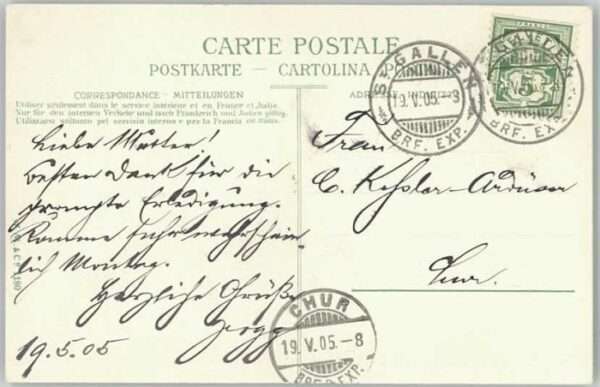 CARTE POSTALE
POSTKARTE — CARTOLINA
CORRESPONDANCE - MITTEILUNGEN
Utiliser seulement dans le service intérieur et en France et Italie.
Nur für den internen Verkehr und nach Frankreich und Italien gültig.
Utilizzare soltanto pel servizio interno e per la Francia
ST. GALLEN
19.V.05.-8
BRF. EXP.
ST. GALLEN
BRF. EXP.
5
Liebe Mutter!
Besten Dank für die
prompte Erledigung.
Komme sehr wahrschein-
lich Montag.
Herzliche Grüße
19.5.05
Frau
C. Kessler-Ardüser
Chur.
CHUR
19.V.05.-8
BRF. EXP.